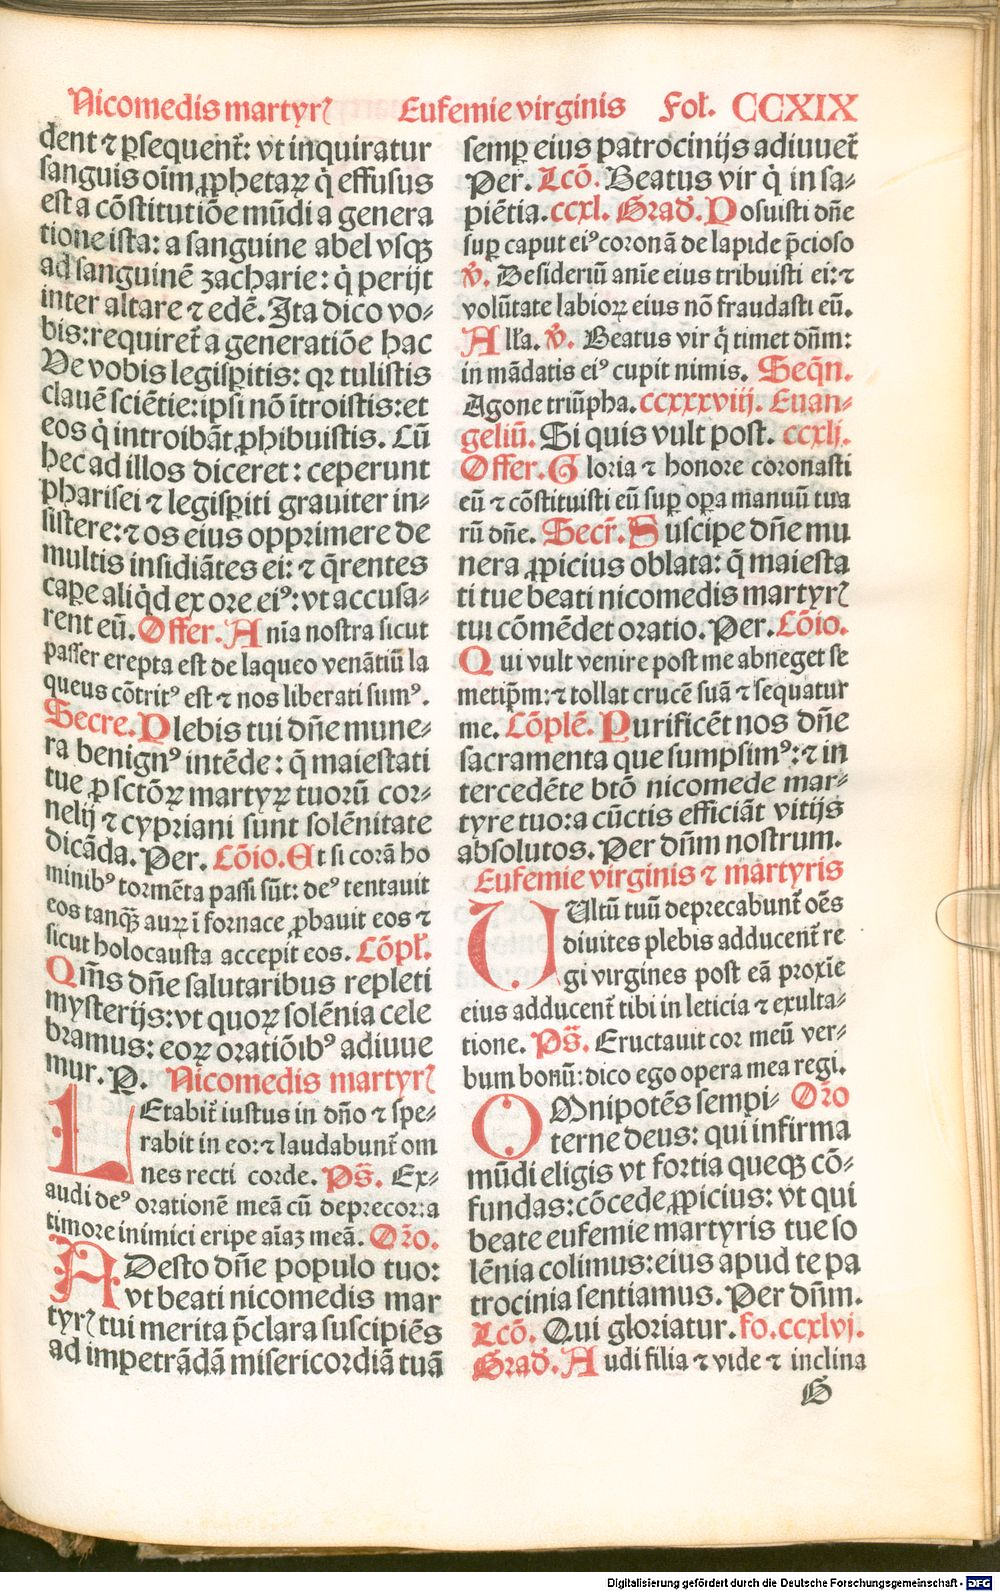 Nicomedis martyrꝭ Eufemie virginis Fol. CCXIX
dent ⁊ ꝑsequent᷑: vt inquiratur
sanguis oīm ꝓphetaꝝ q̇ effusus
est a cōstitutiōe mūdi a genera
tione ista: a sanguine abel vsqꝫ
ad sanguinē zacharie: q̇ perijt
inter altare ⁊ edē. Ita dico vo⸗
bis: requiret᷑ a generatiōe hac
Ve vobis legisꝑitis: qꝛ tulistis
clauē sciētie: ipsi nō ītroistis: et
eos q̇ introibāt ꝓhibuistis. Cū
hec ad illos diceret: ceperunt
pharisei ⁊ legisꝑiti grauiter in⸗
sistere: ⁊ os eius opprimere de
multis insidiātes ei: ⁊ q̄rentes
caꝑe aliq̇d ex ore eiꝰ: vt accusa⸗
rent eū. Offer. A nīa nostra sicut
passer erepta est de laqueo venātiū la
queus cōtritꝰ est ⁊ nos liberati sumꝰ.
Secre. Plebis tui dn̄e mune⸗
ra benignꝰ intēde: q̄ maiestati
tue ꝓ sctōꝝ martyꝝ tuorū cor⸗
nelij ⁊ cypriani sunt solēnitate
dicāda. Per. Cōio. Et si corā ho
minibꝰ tormēta passi sūt: deꝰ tentauit
eos tanqꝫ auꝝ ī fornace ꝓbauit eos ⁊
sicut holocausta accepit eos. Cōpl.
Qm̄s dn̄e salutaribus repleti
mysterijs: vt quoꝝ solēnia cele
bramus: eoꝝ oratiōibꝰ adiuue
mur. P. Nicomedis martyrꝭ
LEtabit᷑ iustus in dn̄o ⁊ spe⸗
rabit in eo: ⁊ laudabunt᷑ om
nes recti corde. Ps̄. Ex⸗
audi deꝰ orationē meā cū deprecor: a
timore inimici eripe aīaꝫ meā. Oꝛo.
ADesto dn̄e populo tuo:
vt beati nicomedis mar
tyrꝭ tui merita p̄clara suscipiēs
ad impetrādā misericordiā tuā
semꝑ eius patrocinijs adiuuet᷑
Per. Lcō. Beatus vir q̇ in sa⸗
piētia. ccxl. Grad. Posuisti dn̄e
suꝑ caput eiꝰ coronā de lapide p̄cioso
℣. Desideriū anīe eius tribuisti ei: ⁊
volūtate labioꝝ eius nō fraudasti eū.
Alla. ℣. Beatus vir q̇ timet dn̄m:
in mādatis eiꝰ cupit nimis. Seqn̄.
Agone triūpha. ccxxxviij. Euan⸗
geliū. Si quis vult post. ccxlj.
Offer. G loria ⁊ honore coronasti
eū ⁊ cōstituisti eū suꝑ oꝑa manuū tua
rū dn̄e. Secr̄. Suscipe dn̄e mu
nera ꝓpicius oblata: q̄ maiesta
ti tue beati nicomedis martyrꝭ
tui cōmēdet oratio. Per. Cōio.
Q ui vult venire post me abneget se
metip̄m: ⁊ tollat crucē suā ⁊ sequatur
me. Cōplē. Purificēt nos dn̄e
sacramenta que sumpsimꝰ: ⁊ in
tercedēte btō nicomede mar⸗
tyre tuo: a cūctis efficiāt vitijs
absolutos. Per dn̄m nostrum.
Eufemie virginis ⁊ martyris
VUltū tuū deprecabunt᷑ oēs
diuites plebis adducent᷑ re
gi virgines post eā proxīe
eius adducent᷑ tibi in leticia ⁊ exulta⸗
tione. Ps̄. Eructauit cor meū ver⸗
bum bonū: dico ego opera mea regi.
OMnipotēs sempi⸗ Oꝛo
terne deus: qui infirma
mūdi eligis vt fortia queqꝫ cō⸗
fundas: cōcede ꝓpicius: vt qui
beate eufemie martyris tue so
lēnia colimus: eius apud te pa
trocinia sentiamus. Per dn̄m.
Lcō. Qui gloriatur. fo. ccxlvj.
Grad. A udi filia ⁊ vide ⁊ inclina
G
Digitalisierung gefördert durch die Deutsche Forschungsgemeinschaft - DFG